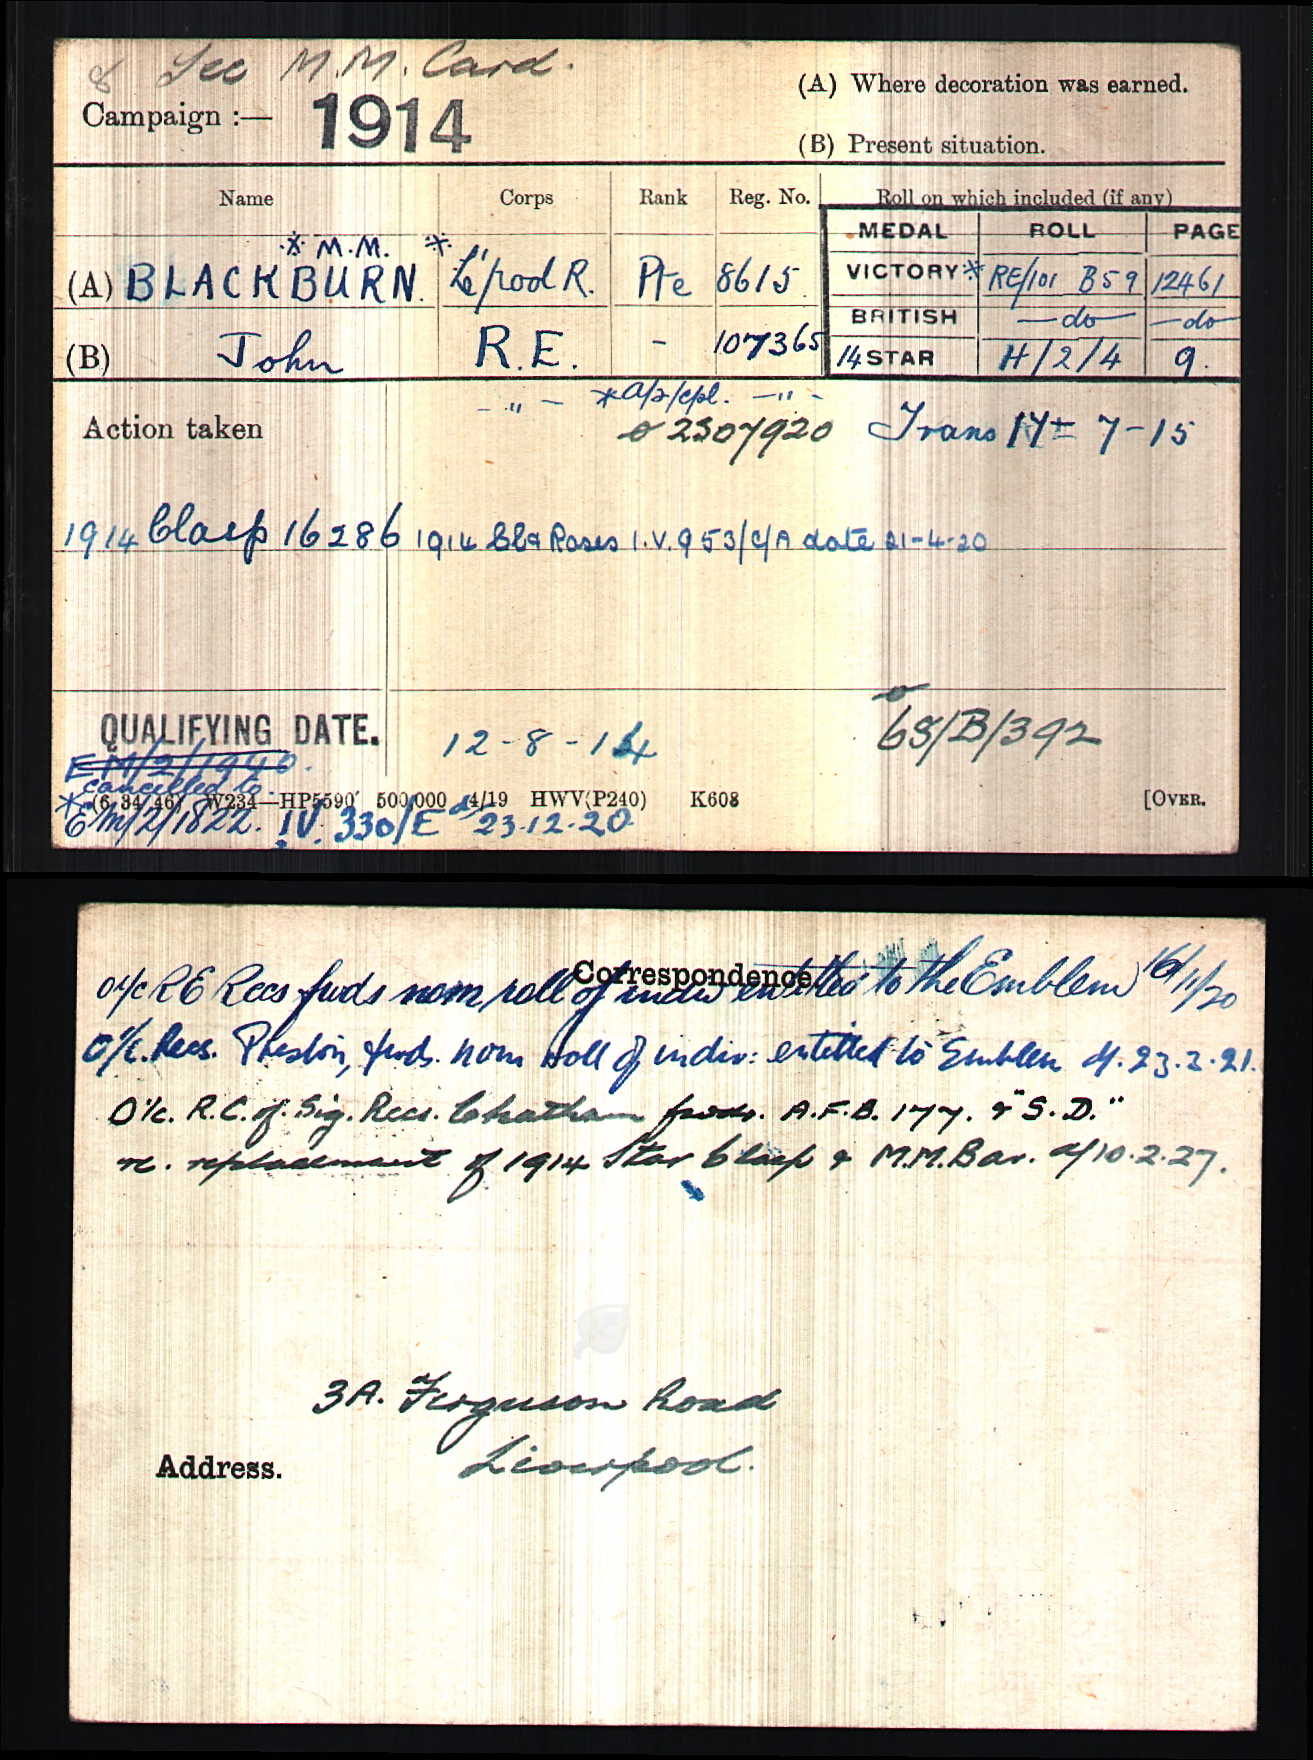 & See M.M. Card.
Campaign :— 1914
(A) Where decoration was earned.
(B) Present situation.
Name Corps Rank Reg. No. Roll on which included (if any)
MEDAL ROLL PAGE
* M.M. *
(A) BLACKBURN. L'pool R. Pte 8615 VICTORY * RE/101 B59 12461
BRITISH —do— —do—
(B) John R.E. - 107365 14 STAR H/2/4 9.
- " - * a/2/cpl. - " -
Action taken 2307920 Trans 17 7-15
1914 Clasp 16286 1914 Cl & Roses I.V. 953/C/A date 21-4-20
QUALIFYING DATE. 12-8-14 68/B/392
EM/2/1940.
cancelled to.
* (6 34 46) W234—HP5590 500,000 4/19 HWV(P240) K608 [OVER.
EM/2/1822. IV. 330/E d/ 23.12.20
Correspondence
O i/c RE Recs fwds nom roll of indiv entitled to the Emblem 16/11/20
O i/c. Recs. Preston, fwds. nom roll of indiv: entitled to Emblem d/. 23.2.21.
O i/c. R.C. of Sig. Recs. Chatham fwds. A.F.B. 177. & "S.D."
re. replacement of 1914 Star Clasp & M.M. Bar. d/10.2.27.
3A. Ferguson Road
Address. Liverpool.